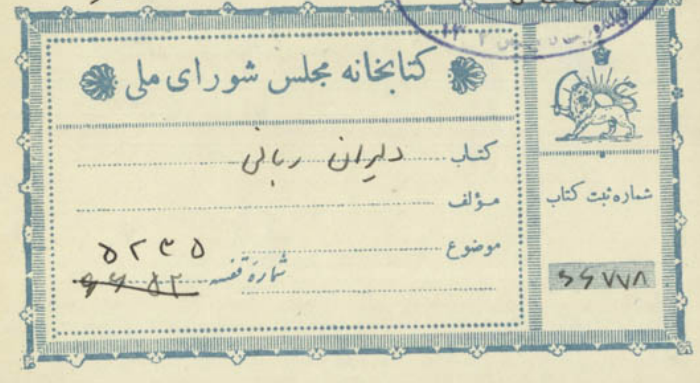 کتابخانه مجلس شورای ملی
کتاب دلیران ربانی
مؤلف
موضوع
۵۲۳۵
شماره قفسه
شماره ثبت کتاب
۶۶۷۷۸